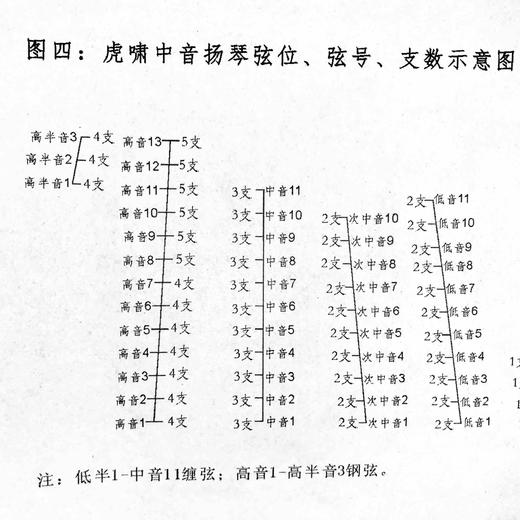 图四：虎啸中音扬琴弦位、弦号、支数示意图
高半音3 4支
高半音2 4支
高半音1 4支
高音13 5支
高音12 5支
高音11 5支
高音10 5支
高音9 5支
高音8 5支
高音7 4支
高音6 4支
高音5 4支
高音4 4支
高音3 4支
高音2 4支
高音1 4支
3支 中音11
3支 中音10
3支 中音9
3支 中音8
3支 中音7
3支 中音6
3支 中音5
3支 中音4
3支 中音3
3支 中音2
3支 中音1
2支 次中音10
2支 次中音9
2支 次中音8
2支 次中音7
2支 次中音6
2支 次中音5
2支 次中音4
2支 次中音3
2支 次中音2
2支 次中音1
2支 低音11
2支 低音10
2支 低音9
2支 低音8
2支 低音7
2支 低音6
2支 低音5
2支 低音4
2支 低音3
2支 低音2
2支 低音1
1支
注：低半1-中音11缠弦；高音1-高半音3钢弦。